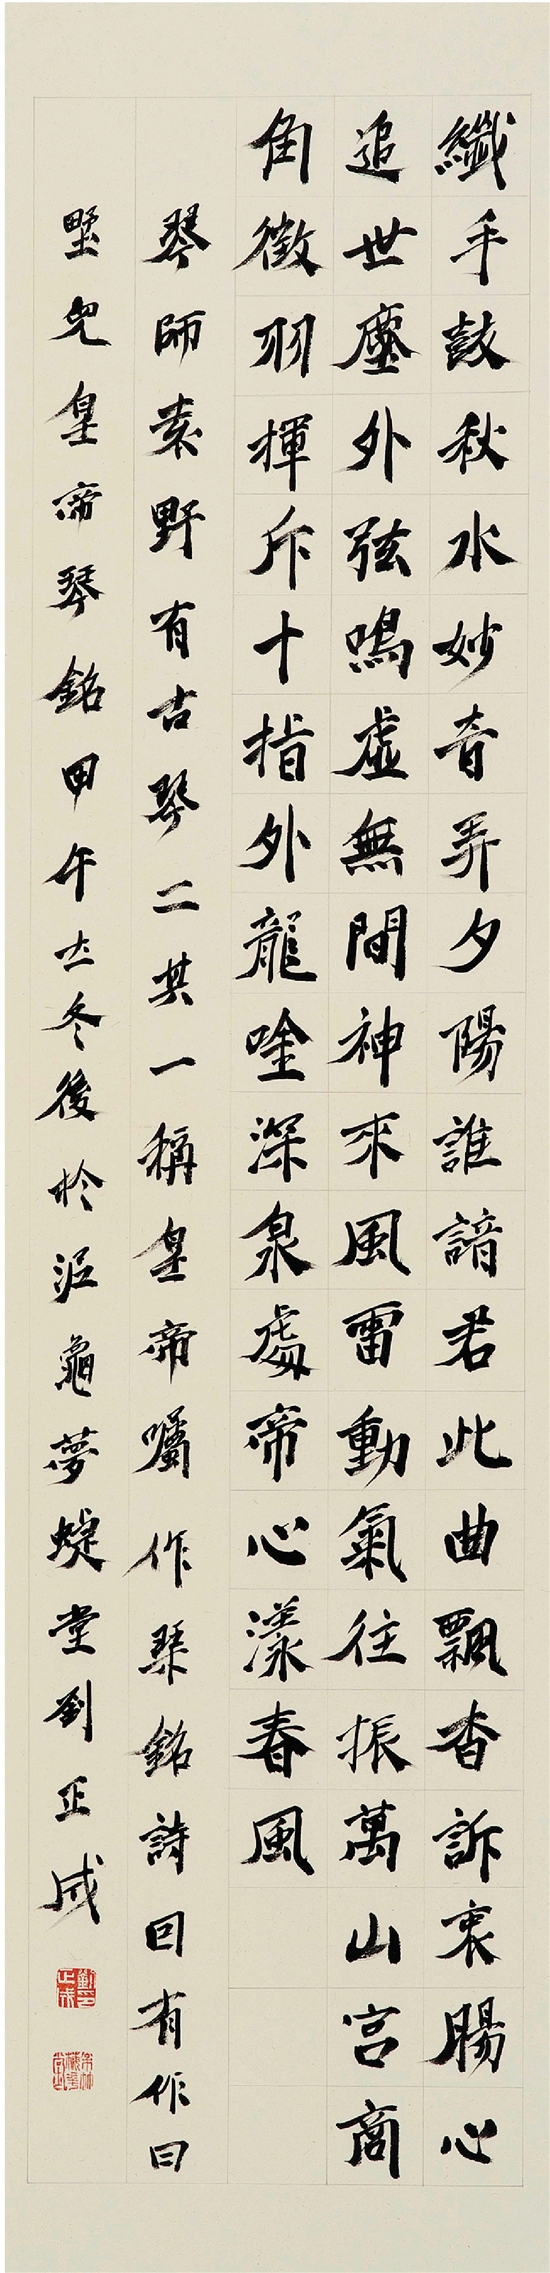 纖手鼓秋水妙音弄夕陽誰諳君此曲飄杳訴衷腸心
追世塵外弦鳴虛無間神來風雷動氣往振萬山宮商
角徵羽揮斥十指外龍唫深泉處帝心漾春風
琴師袁野有古琴二其一稱皇帝囑作琴銘詩囙有作曰
皇帝琴銘甲午立冬後於泥龜夢蜨堂劉正成